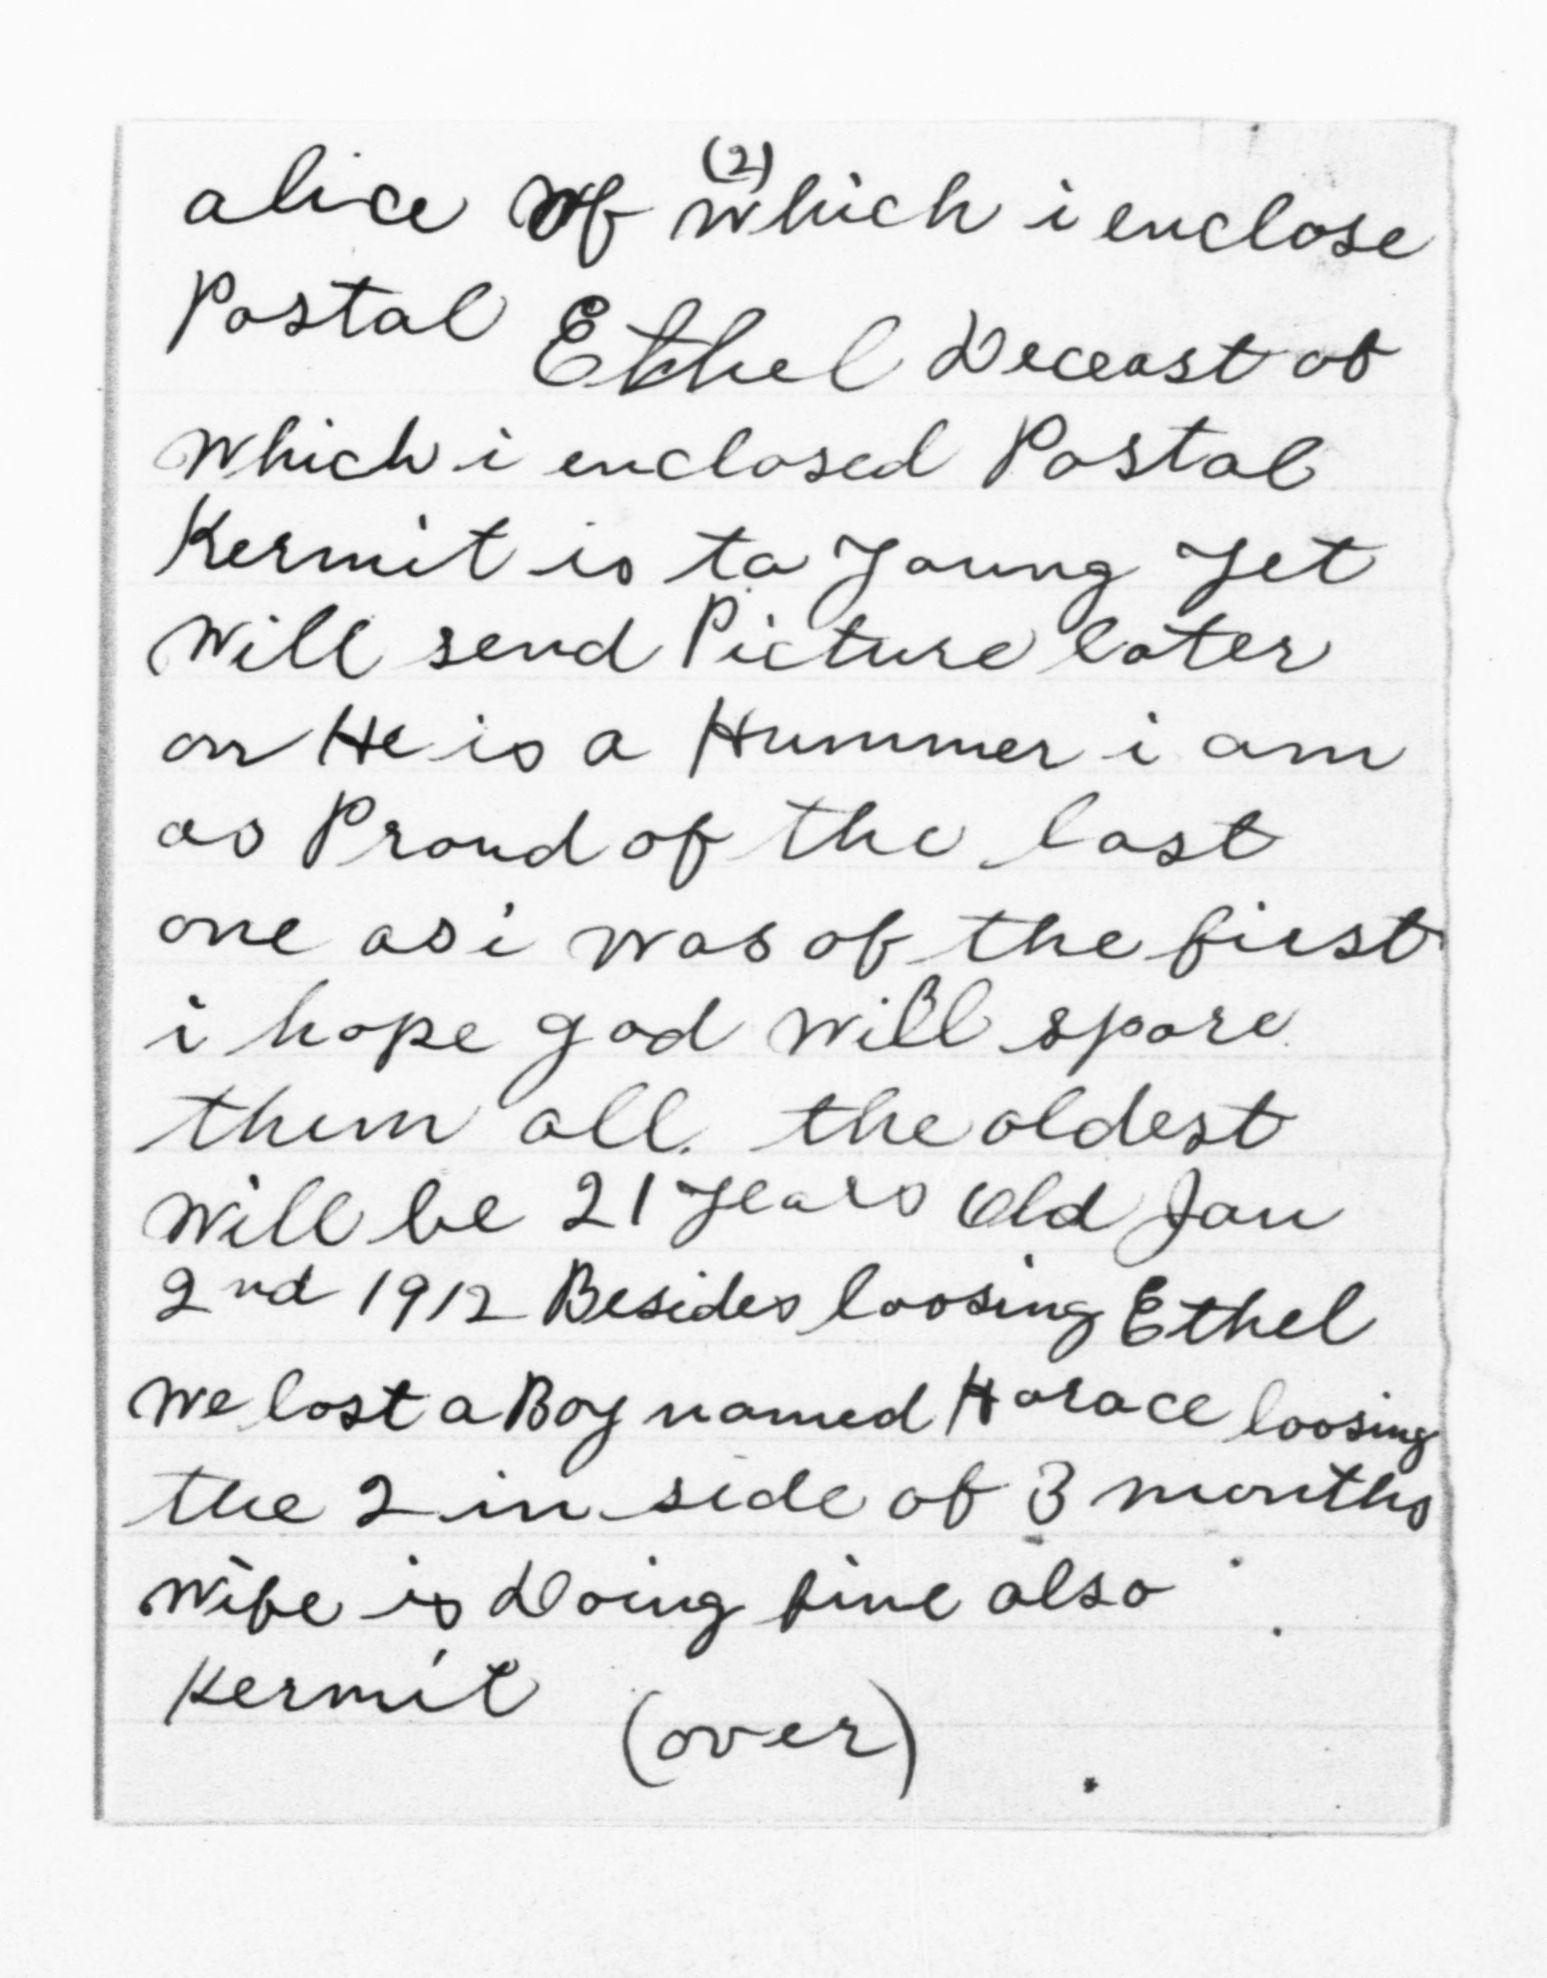 (2)
alice of which i enclose
Postal Ethel Deceast of
which i enclosed Postal
Kermit is to young yet
will send Picture later
on He is a Hummer i am
as Proud of the last
one as i was of the first
i hope god will spare
them all. the oldest
will be 21 years Old Jan
2nd 1912 Besides loosing Ethel
we lost a Boy named Horace loosing
the 2 in side of 3 months
wife is Doing fine also
Kermit (over)